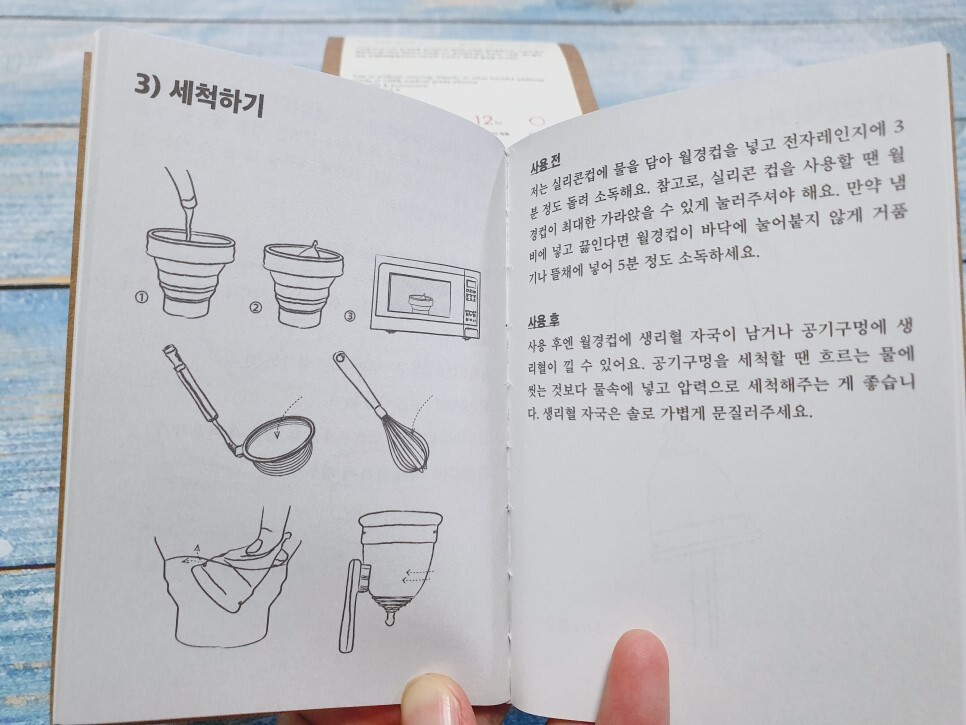 3) 세척하기
①
②
③
12
사용 전
저는 실리콘컵에 물을 담아 월경컵을 넣고 전자레인지에 3
분 정도 돌려 소독해요. 참고로, 실리콘 컵을 사용할 땐 월
경컵이 최대한 가라앉을 수 있게 눌러주셔야 해요. 만약 냄
비에 넣고 끓인다면 월경컵이 바닥에 눌어붙지 않게 거품
기나 뜰채에 넣어 5분 정도 소독하세요.
사용 후
사용 후엔 월경컵에 생리혈 자국이 남거나 공기구멍에 생
리혈이 낄 수 있어요. 공기구멍을 세척할 땐 흐르는 물에
씻는 것보다 물속에 넣고 압력으로 세척해주는 게 좋습니
다. 생리혈 자국은 솔로 가볍게 문질러주세요.